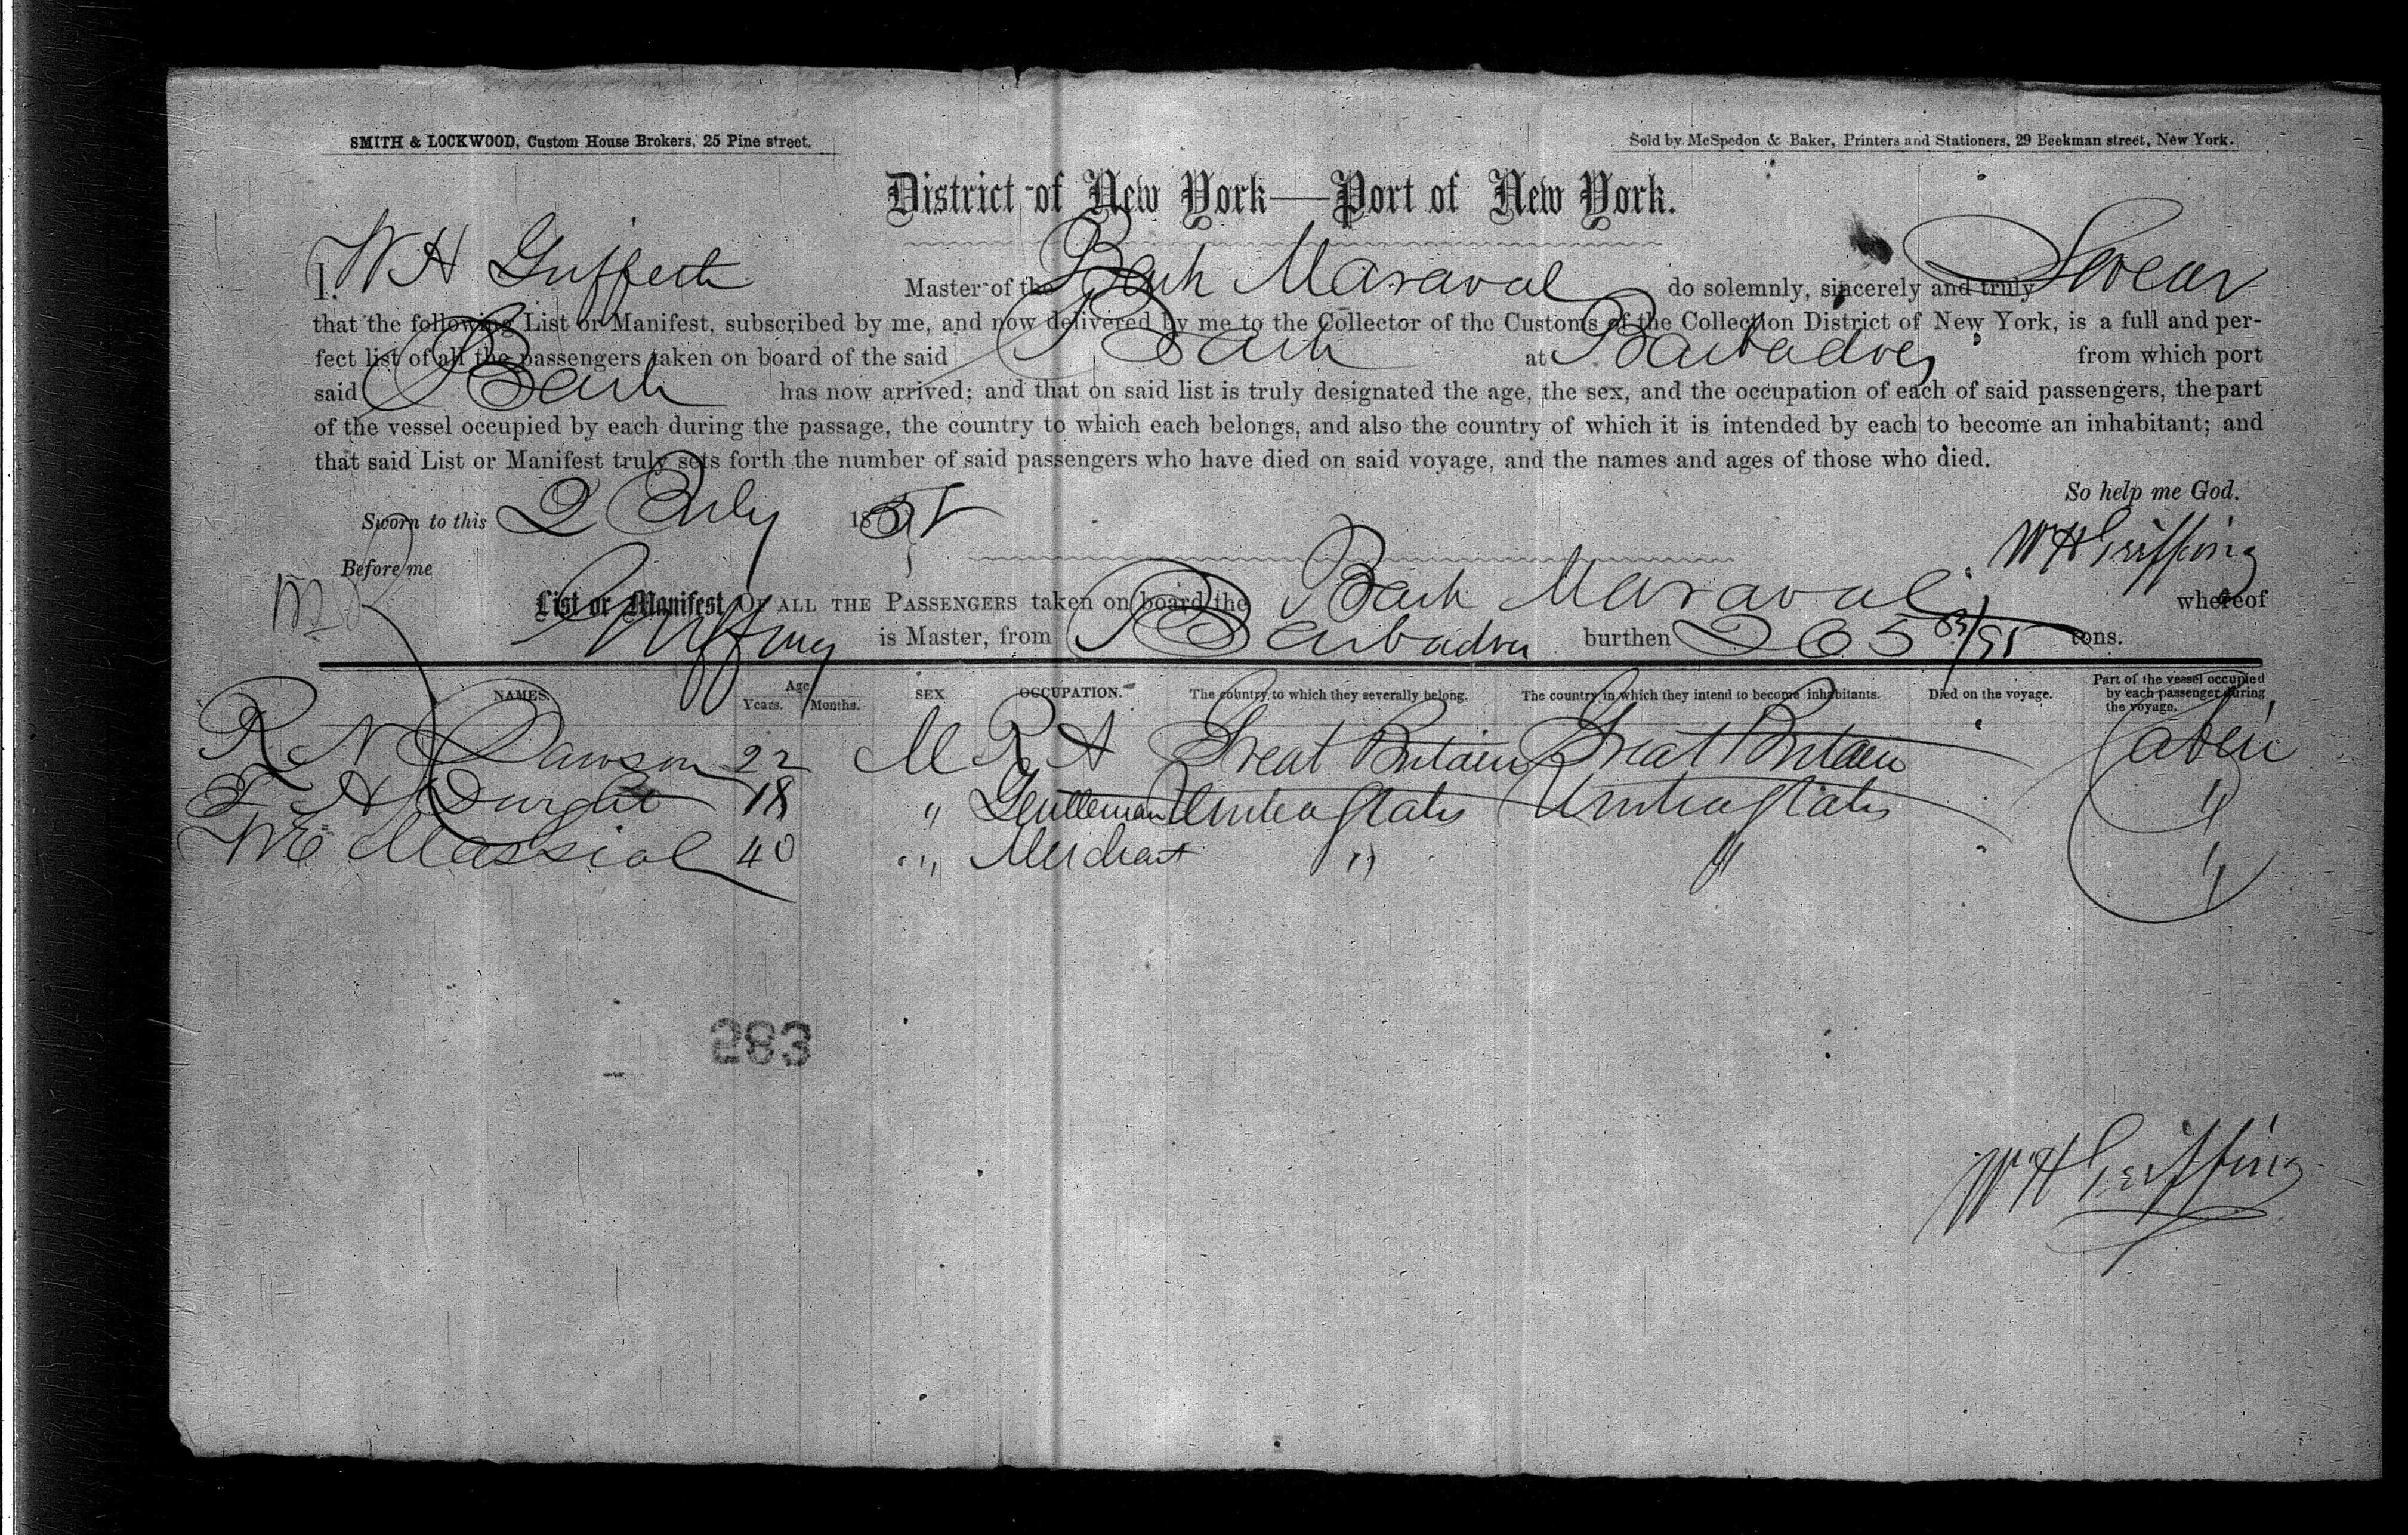 SMITH & LOCKWOOD, Custom House Brokers, 25 Pine street.
Sold by McSpedon & Baker, Printers and Stationers, 29 Beekman street, New York.
District of New York—Port of New York.
I, W H Griffeth Master of the Bark Maraval do solemnly, sincerely and truly Swear
that the following List or Manifest, subscribed by me, and now delivered by me to the Collector of the Customs of the Collection District of New York, is a full and per-
fect list of all the passengers taken on board of the said Bark at Barbadoes from which port
said Bark has now arrived; and that on said list is truly designated the age, the sex, and the occupation of each of said passengers, the part
of the vessel occupied by each during the passage, the country to which each belongs, and also the country of which it is intended by each to become an inhabitant; and
that said List or Manifest truly sets forth the number of said passengers who have died on said voyage, and the names and ages of those who died.
So help me God.
Sworn to this 2 July 18
W H Griffing
Before me
List or Manifest OF ALL THE PASSENGERS taken on board the Bark Maraval whereof
Griffing is Master, from Barbadoes burthen 265 83/95 tons.
NAMES. Age Years. Months. SEX OCCUPATION. The country to which they severally belong. The country in which they intend to become inhabitants. Died on the voyage. Part of the vessel occupied by each passenger during the voyage.
R N Dawson 22 M R A Great Britain Great Britain Cabin
H Dwight 18 " Gentleman United States United States "
Massiol 40 " Merchant " " "
283
W H Griffing